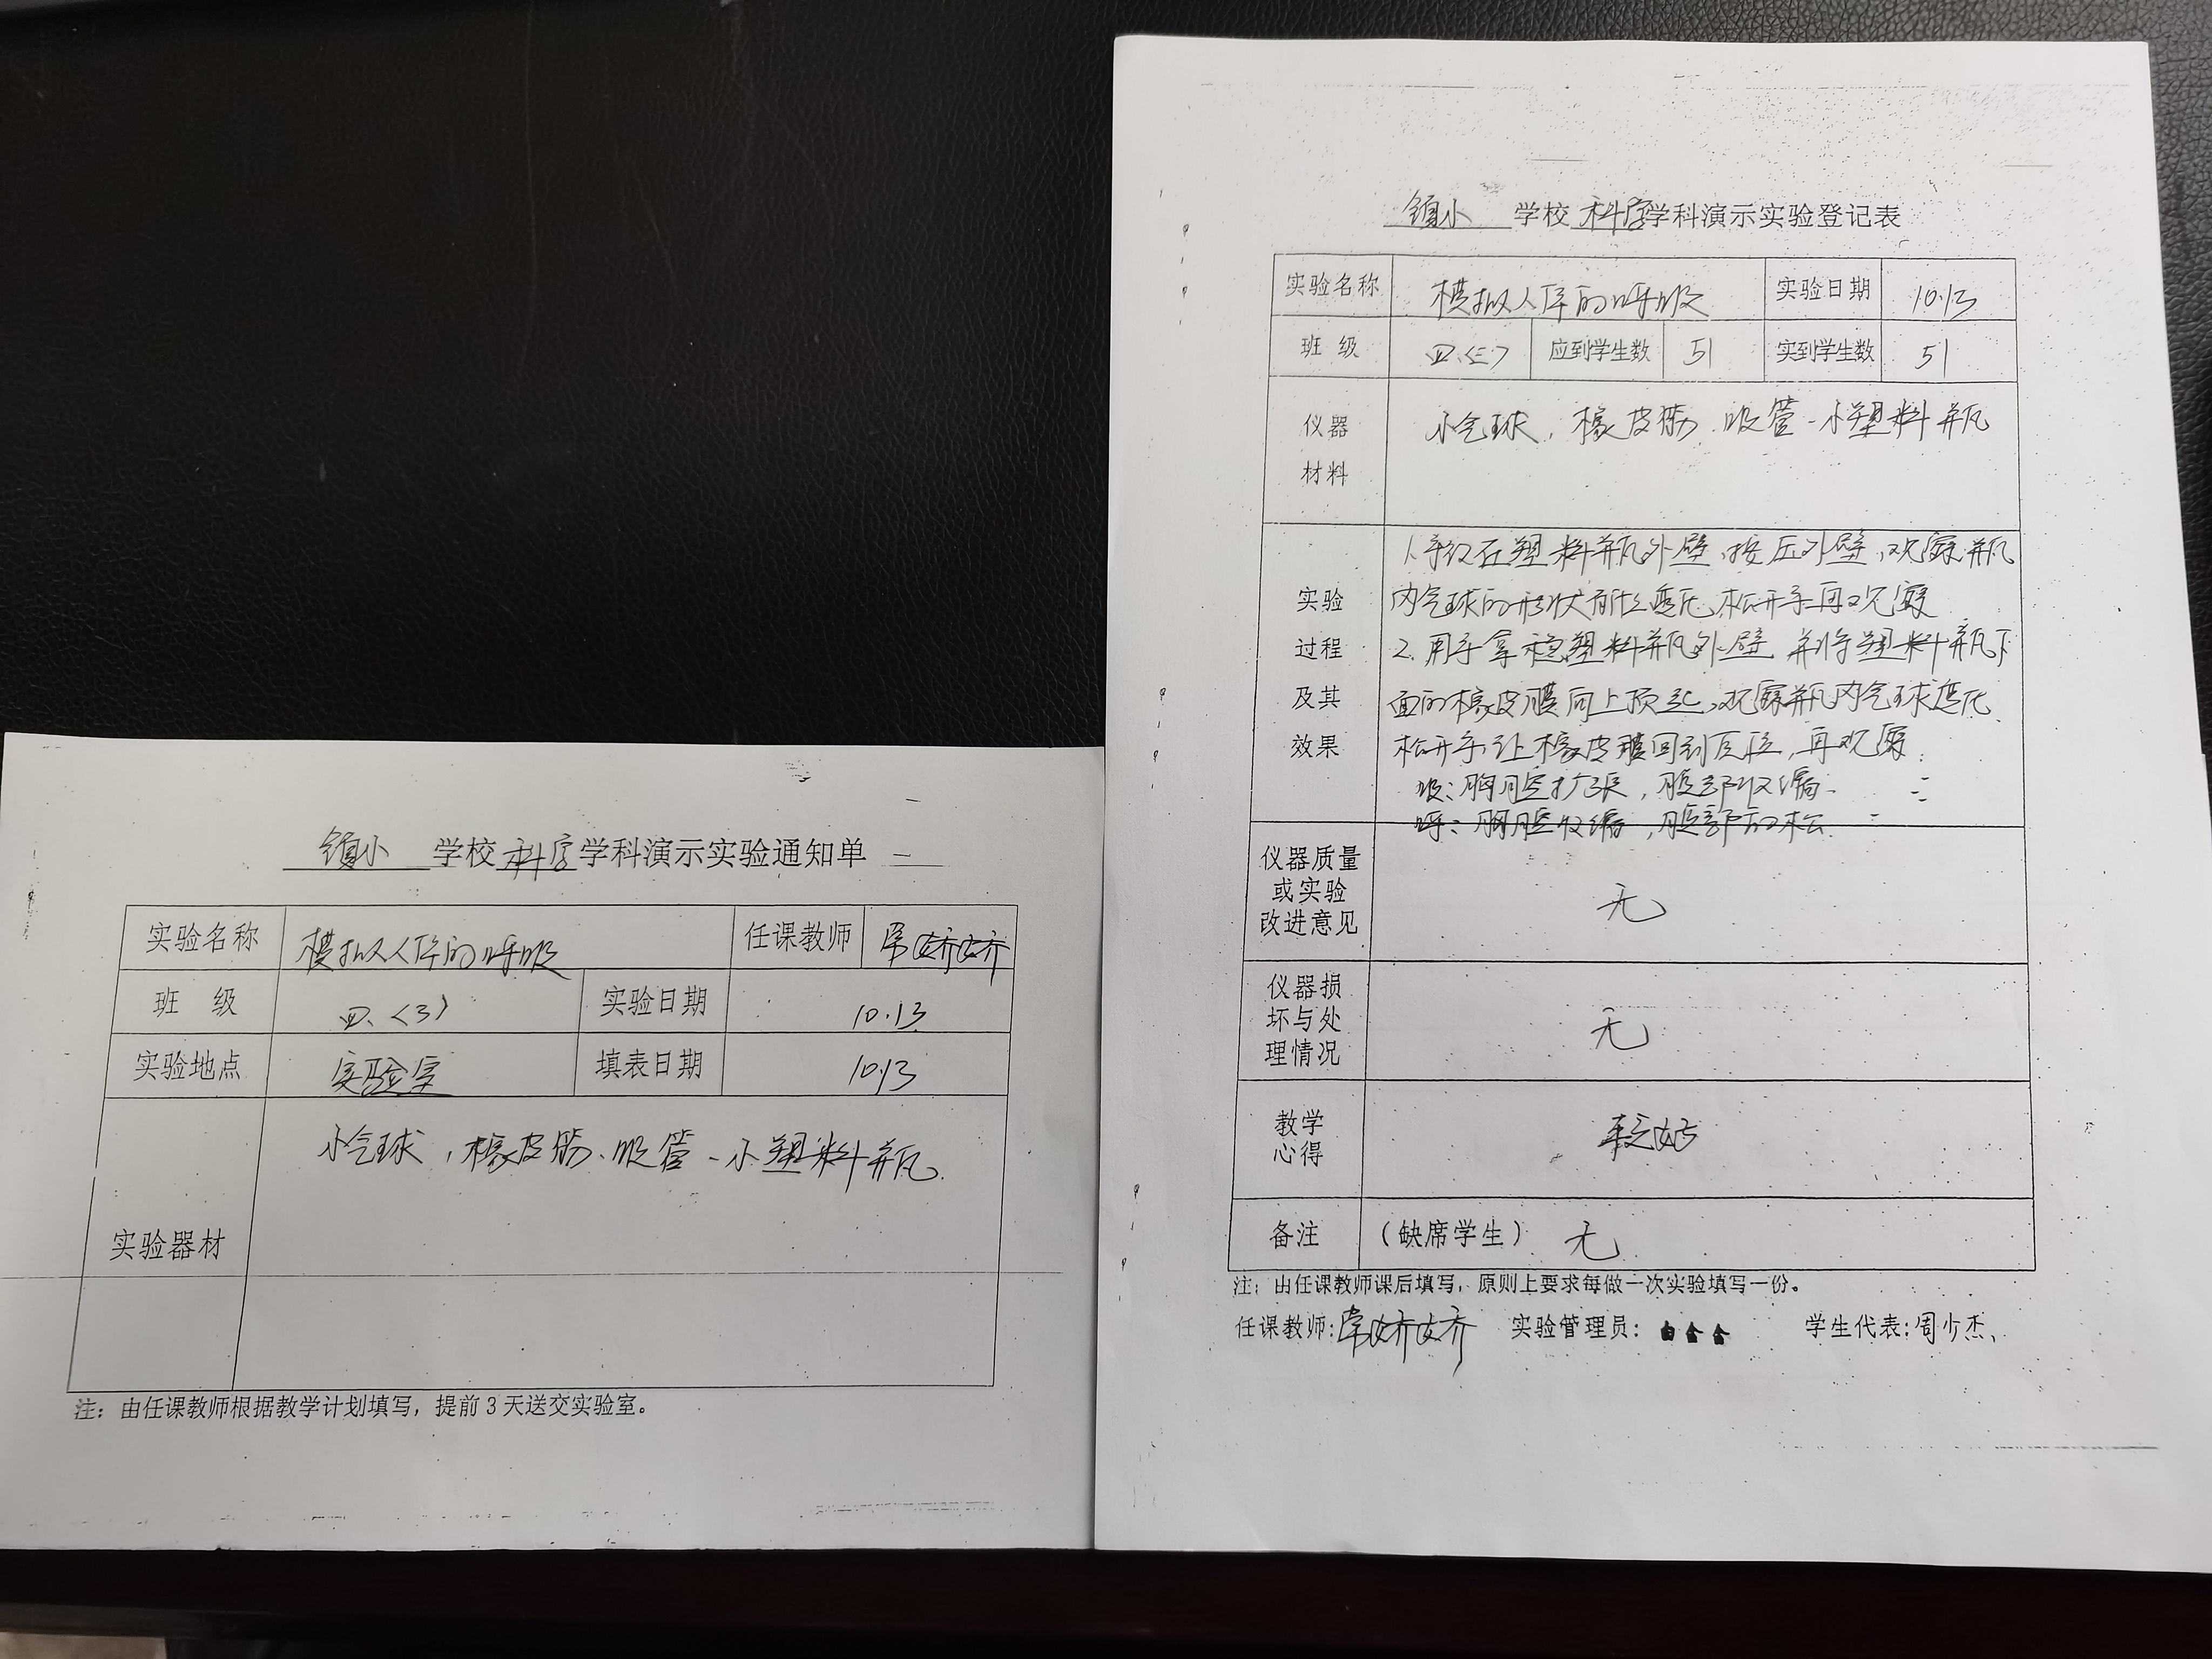 镇小 学校 科学 学科演示实验通知单
实验名称 模拟人体的呼吸 任课教师 常娇娇
班 级 四、〈3〉 实验日期 10.13
实验地点 实验室 填表日期 10.13
实验器材 小气球，橡皮筋、吸管、小塑料瓶.
注：由任课教师根据教学计划填写，提前3天送交实验室。
镇小 学校 科学 学科演示实验登记表
实验名称 模拟人体的呼吸 实验日期 10.13
班 级 四.〈三〉 应到学生数 51 实到学生数 51
仪器
材料
小气球，橡皮筋、吸管、小塑料瓶
实验
过程
及其
效果
1.手放在塑料瓶外壁，按压外壁，观察瓶
内气球的形状有什么变化，松开手再观察
2.用手拿稳塑料瓶外壁，并将塑料瓶下
面的橡皮膜向上顶起，观察瓶内气球变化
松开手，让橡皮膜回到原位，再观察.
吸：胸腔扩张，腹部收缩.
呼：胸腔收缩，腹部放松.
仪器质量
或实验
改进意见
无
仪器损
坏与处
理情况
无
教学
心得
较好
备注 （缺席学生） 无
注：由任课教师课后填写，原则上要求每做一次实验填写一份。
任课教师：常娇娇 实验管理员： 学生代表：周少杰